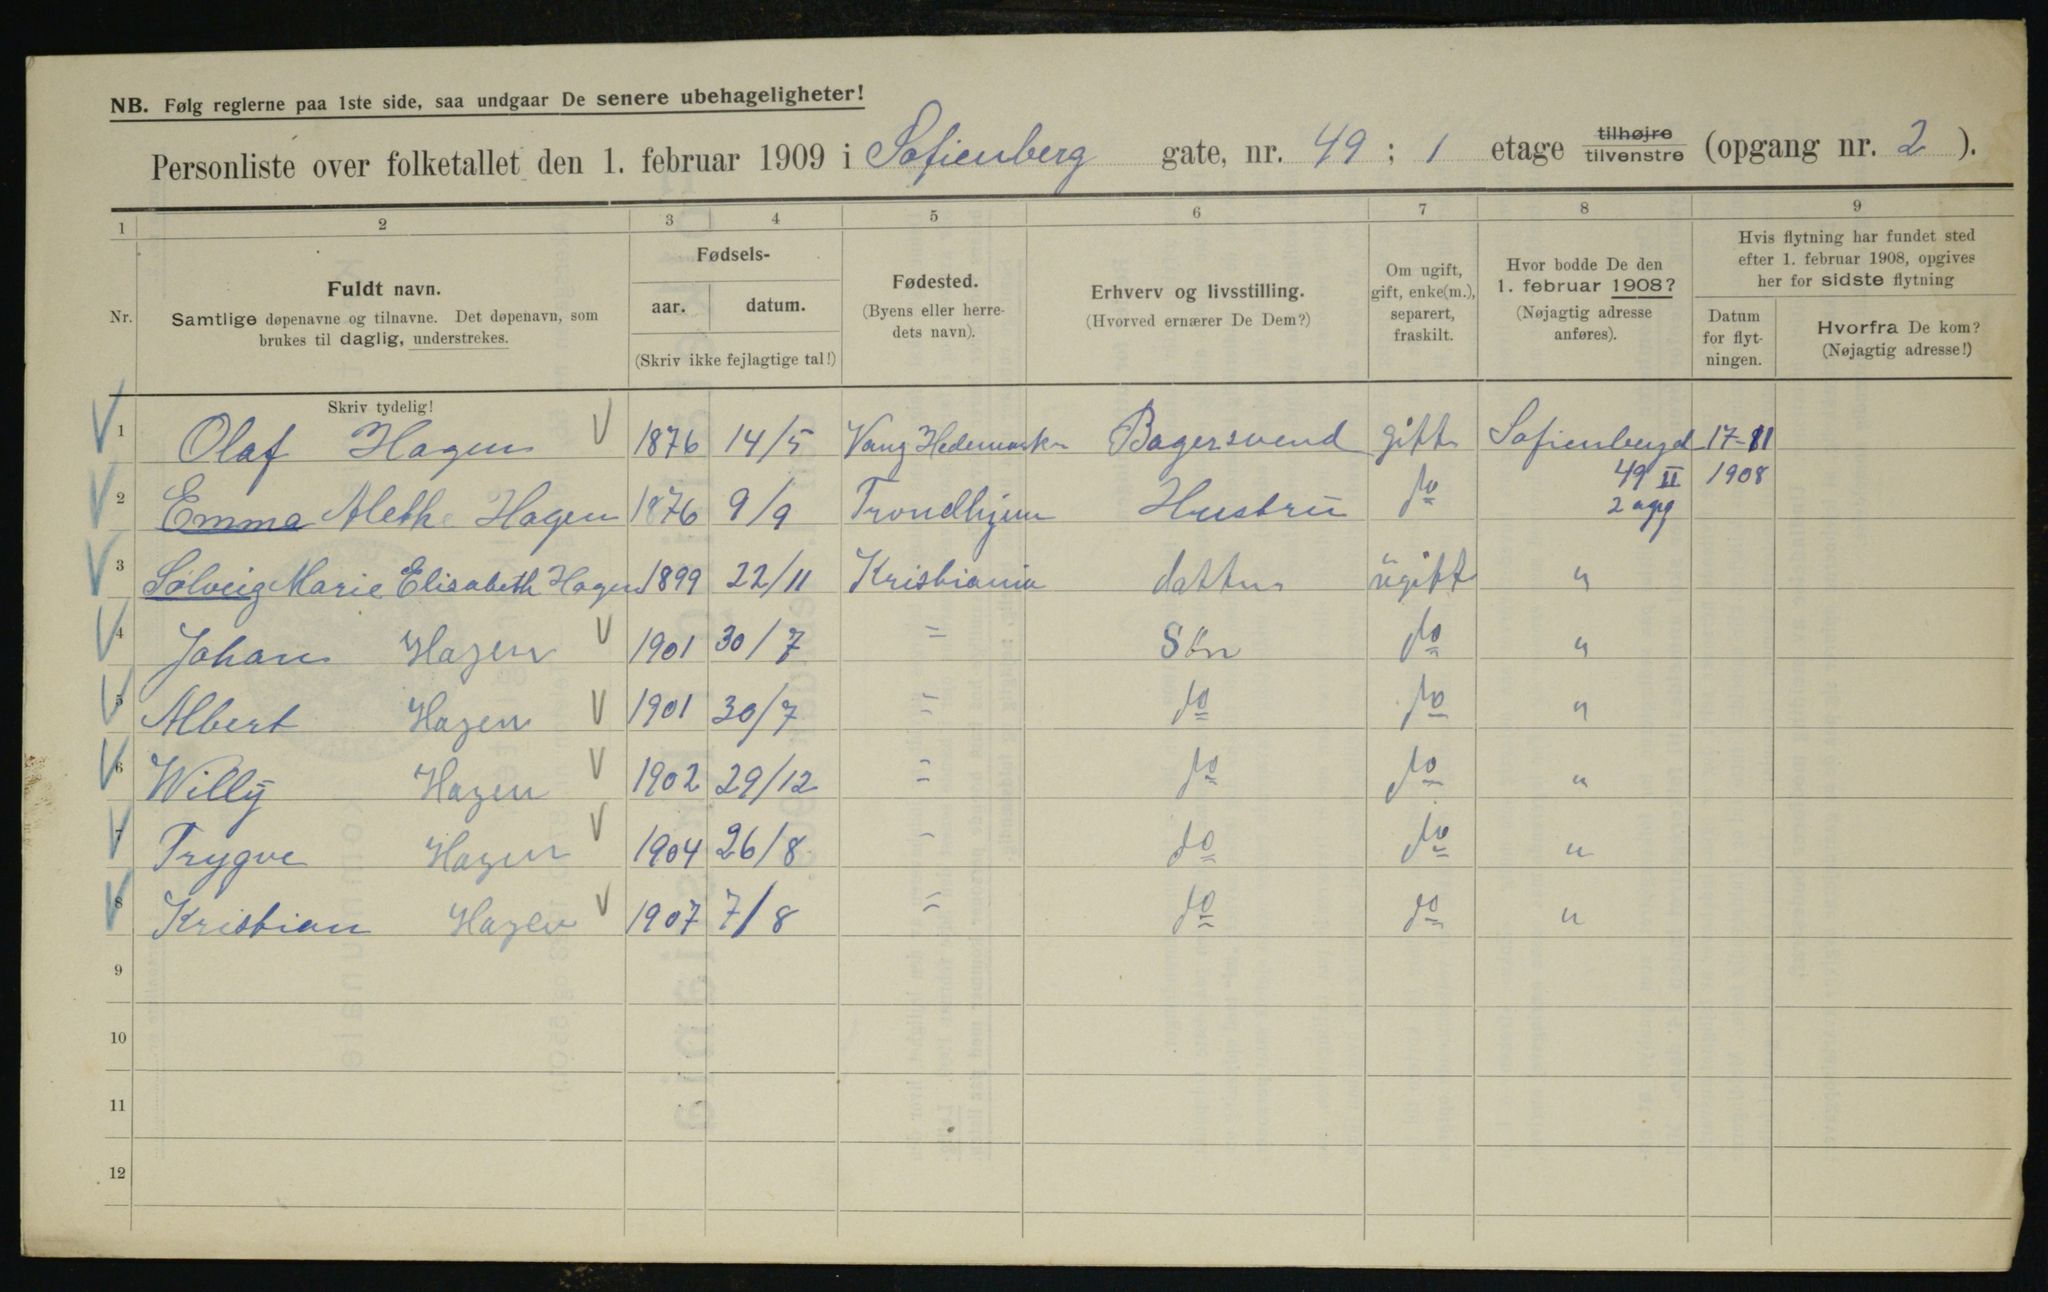 NB. Følg reglerne paa 1ste side, saa undgaar De senere ubehageligheter!
Personliste over folketallet den 1. februar 1909 i Sofienberg gate, nr. 49 ; 1 etage tilhøjre tilvenstre (opgang nr. 2 ).
1 2 3 4 5 6 7 8 9
Nr.
Fuldt navn.
Samtlige døpenavne og tilnavne. Det døpenavn, som
brukes til daglig, understrekes.
Skriv tydelig!
Fødsels-
aar. datum.
(Skriv ikke fejlagtige tal!)
Fødested.
(Byens eller herre-
dets navn).
Erhverv og livsstilling.
(Hvorved ernærer De Dem?)
Om ugift,
gift, enke(m.),
separert,
fraskilt.
Hvor bodde De den
1. februar 1908?
(Nøjagtig adresse
anføres).
Hvis flytning har fundet sted
efter 1. februar 1908, opgives
her for sidste flytning
Datum
for flyt-
ningen.
Hvorfra De kom?
(Nøjagtig adresse!)
1 Olaf Hagen 1876 14/5 Vang Hedemarken Bagersvend gift Sofienbergd 17-11
49 II 1908
2 Emma Alethe Hagen 1876 9/9 Trondhjem Hustru do 2 opg
3 Solveig Marie Elisabeth Hagen 1899 22/11 Kristiania datter ugift "
4 Johan Hagen 1901 30/7 " Sön do "
5 Albert Hagen 1901 30/7 " do do "
6 Willy Hagen 1902 29/12 " do do "
7 Trygve Hagen 1904 26/8 " do do "
8 Kristian Hagen 1907 7/8 " do do "
9
10
11
12